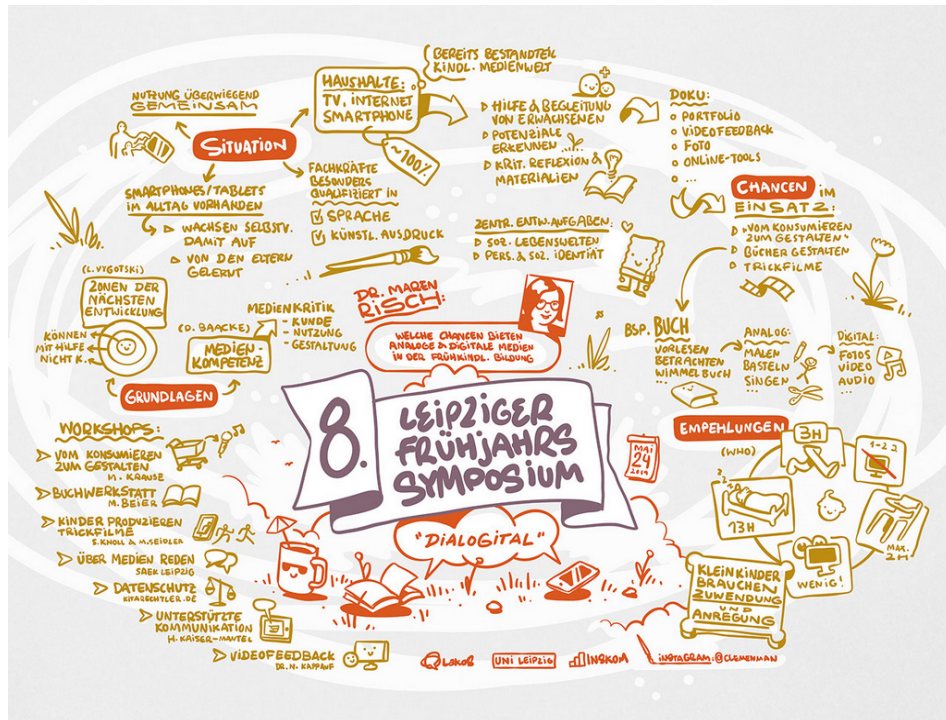 BEREITS BESTANDTEIL
KINDL. MEDIENWELT
HAUSHALTE:
TV, INTERNET
SMARTPHONE
~100%
NUTZUNG ÜBERWIEGEND
GEMEINSAM
SITUATION
SMARTPHONES/TABLETS
IM ALLTAG VORHANDEN
WACHSEN SELBSTV.
DAMIT AUF
VON DEN ELTERN
GELERNT
FACHKRÄFTE
BESONDERS
QUALIFIZIERT IN
SPRACHE
KÜNSTL. AUSDRUCK
HILFE & BEGLEITUNG
VON ERWACHSENEN
POTENZIALE
ERKENNEN
KRIT. REFLEXION &
MATERIALIEN
DOKU:
PORTFOLIO
VIDEOFEEDBACK
FOTO
ONLINE-TOOLS
...
CHANCEN IM
EINSATZ:
VOM KONSUMIEREN
ZUM GESTALTEN
BÜCHER GESTALTEN
TRICKFILME
ZENTR. ENTW. AUFGABEN:
SOZ. LEBENSWELTEN
PERS. & SOZ. IDENTIÄT
(L. VYGOTSKI)
ZONEN DER
NÄCHSTEN
ENTWICKLUNG
KÖNNEN
MIT HILFE
NICHT K.
(D. BAACKE)
MEDIEN-
KOMPETENZ
MEDIENKRITIK
- KUNDE
- NUTZUNG
- GESTALTUNG
GRUNDLAGEN
DR. MAREN
RISCH:
WELCHE CHANCEN BIETEN
ANALOGE & DIGITALE MEDIEN
IN DER FRÜHKINDL. BILDUNG
BSP. BUCH
VORLESEN
BETRACHTEN
WIMMELBUCH
ANALOG:
MALEN
BASTELN
SINGEN
...
DIGITAL:
FOTOS
VIDEO
AUDIO
...
8.
LEIPZIGER
FRÜHJAHRS
SYMPOSIUM
"DIALOGITAL"
MAI
24
2019
WORKSHOPS:
VOM KONSUMIEREN
ZUM GESTALTEN
M. KRAUSE
BUCHWERKSTATT
M. BEIER
KINDER PRODUZIEREN
TRICKFILME
S. KNOLL & M. SEIDLER
ÜBER MEDIEN REDEN
SAEK LEIPZIG
DATENSCHUTZ
KITARECHTLER.DE
UNTERSTÜTZTE
KOMMUNIKATION
H. KAISER-MANTEL
VIDEOFEEDBACK
DR. N. KAPPAUF
EMPEHLUNGEN
(WHO)
3H
1-2 J
13H
MAX.
2H
WENIG!
KLEINKINDER
BRAUCHEN
ZUWENDUNG
UND
ANREGUNG
Lakos
UNI LEIPZIG
INSKOM
INSTAGRAM: @CLEMENMAN